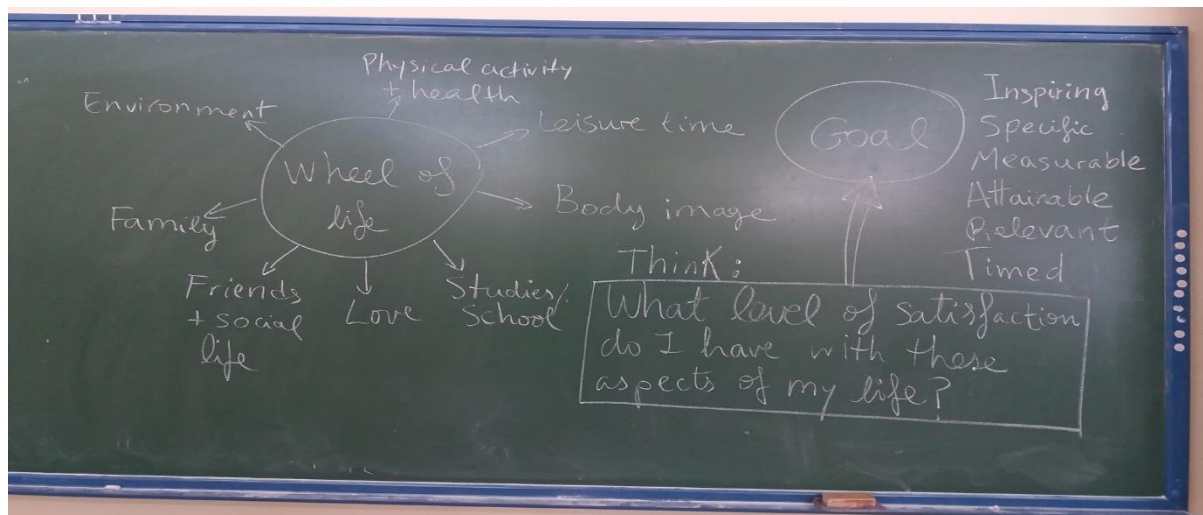 Physical activity
+ health
Environment
Leisure time
Wheel of
life
Body image
Family
Friends
+ social
life
Love
Studies/
School
Goal
Inspiring
Specific
Measurable
Attainable
Relevant
Timed
Think:
What level of satisfaction
do I have with these
aspects of my life?